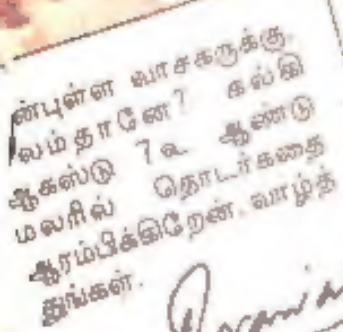 ன்புள்ள வாசகருக்கு.
லம்தானே? கல்கி
ஆகஸ்டு 7உ ஆண்டு
மலரில் தொடர்கதை
ஆரம்பிக்கிறேன். வாழ்த்
துங்கள்.